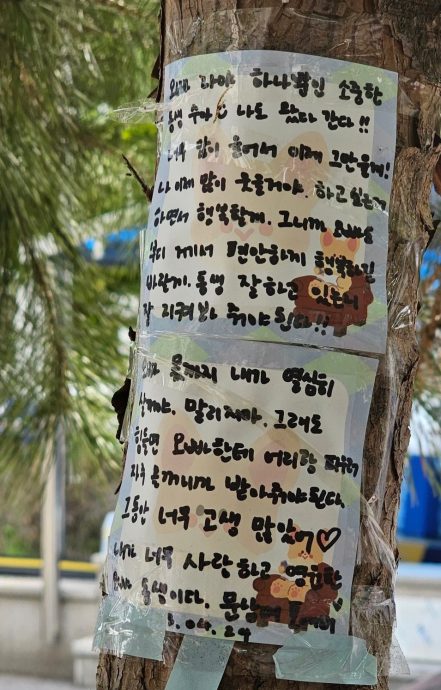 오빠 나야 하나뿐인 소중한
동생 나도 왔다 간다!!
너무 많이 울어서 이제 그만울게!
나 이제 많이 웃을거야. 하고싶은거
하면서 행복할게. 그니까 오빠도
거기 에서 편안하게 행복하길
바랄게. 동생 잘하고 있는지
잘 지켜봐 줘야된다!!
오빠 몫까지 내가 열심히
살게야. 말리지마. 그래도
힘들면 오빠한테 어리광 피우러
자주 올꺼니까 받아줘야된다
그동안 너무 고생 많았어♡
내가 너무 사랑하고 영원한
오빠 동생이다.
04. 24